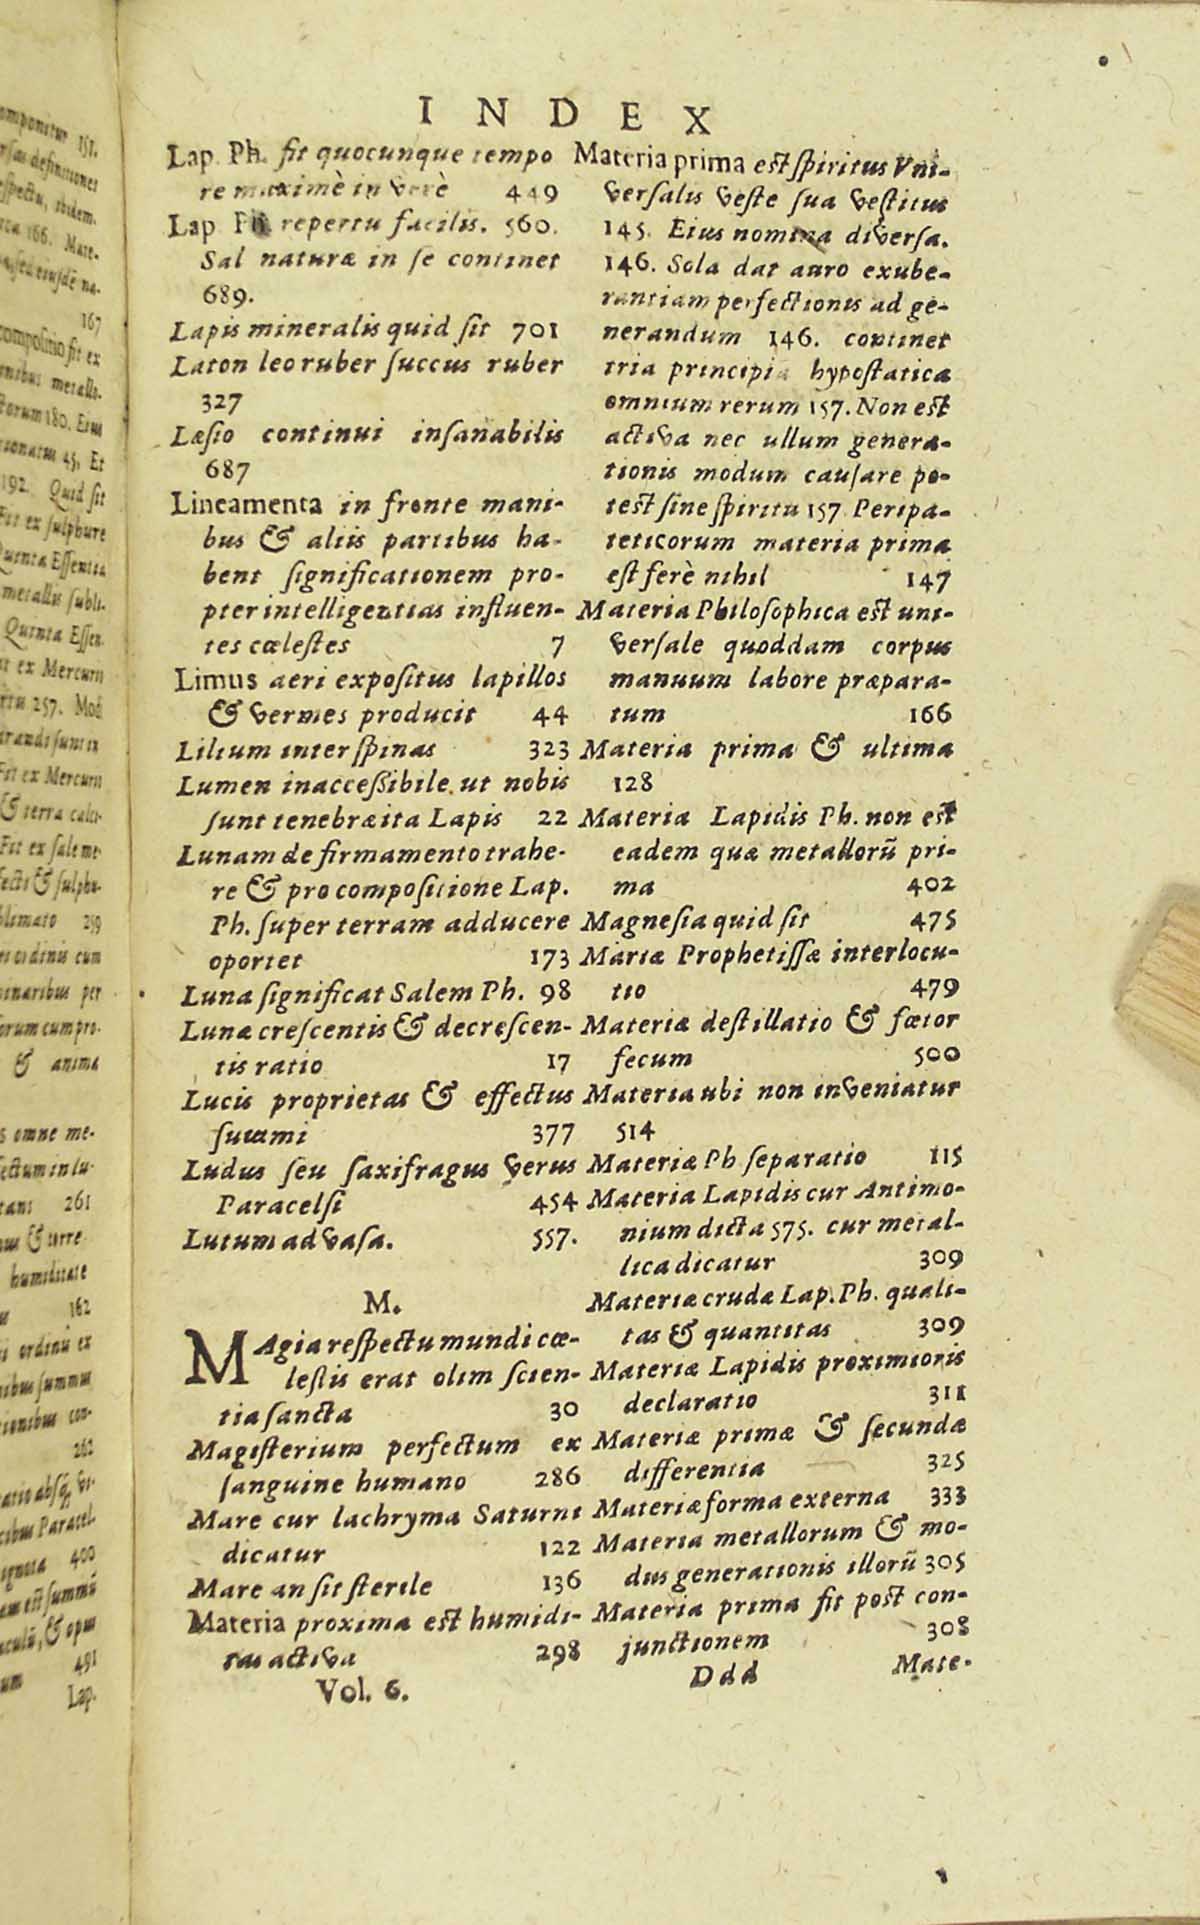 INDEX
Lap. Ph. fit quocunque tempo
re maximè in verè 449
Lap. Ph. repertu facilis. 560.
Sal naturæ in se continet
689.
Lapis mineralis quid sit 701
Laton leo ruber succus ruber
327
Læsio continui insanabilis
687
Lineamenta in fronte mani-
bus & aliis partibus ha-
bent significationem pro-
pter intelligentias influen-
tes cœlestes 7
Limus aeri expositus lapillos
& vermes producit 44
Lilium inter spinas 323
Lumen inaccessibile ut nobis
sunt tenebræ ita Lapis 22
Lunam de firmamento trahe-
re & pro compositione Lap.
Ph. super terram adducere
oportet 173
Luna significat Salem Ph. 98
Lunæ crescentis & decrescen-
tis ratio 17
Lucis proprietas & effectus
summi 377
Ludus seu saxifragus verus
Paracelsi 454
Lutum ad vasa. 557.
M.
MAgia respectu mundi cœ-
lestis erat olim scien-
tia sancta 30
Magisterium perfectum ex
sanguine humano 286
Mare cur lachryma Saturni
dicatur 122
Mare an sit sterile 136
Materia proxima est humidi-
tas activa 298
Vol. 6.
Materia prima est spiritus Vni-
versalis veste sua vestitus
145. Eius nomina diversa.
146. Sola dat auro exube-
rantiam perfectionis ad ge-
nerandum 146. continet
tria principia hypostatica
omnium rerum 157. Non est
activa nec ullum genera-
tionis modum causare po-
test sine spiritu 157. Peripa-
teticorum materia prima
est ferè nihil 147
Materia Philosophica est uni-
versale quoddam corpus
manuum labore præpara-
tum 166
Materia prima & ultima
128
Materia Lapidis Ph. non est
eadem quæ metallorū pri-
ma 402
Magnesia quid sit 475
Mariæ Prophetissæ interlocu-
tio 479
Materiæ destillatio & fœtor
fecum 500
Materia ubi non inveniatur
514
Materiæ Ph separatio 115
Materia Lapidis cur Antimo-
nium dicta 575. cur metal-
lica dicatur 309
Materiæ crudæ Lap. Ph. quali-
tas & quantitas 309
Materiæ Lapidis proximioris
declaratio 311
Materiæ primæ & secundæ
differentia 325
Materiæ forma externa 333
Materia metallorum & mo-
dus generationis illorū 305
Materia prima fit post con-
junctionem 308
Ddd Mate-